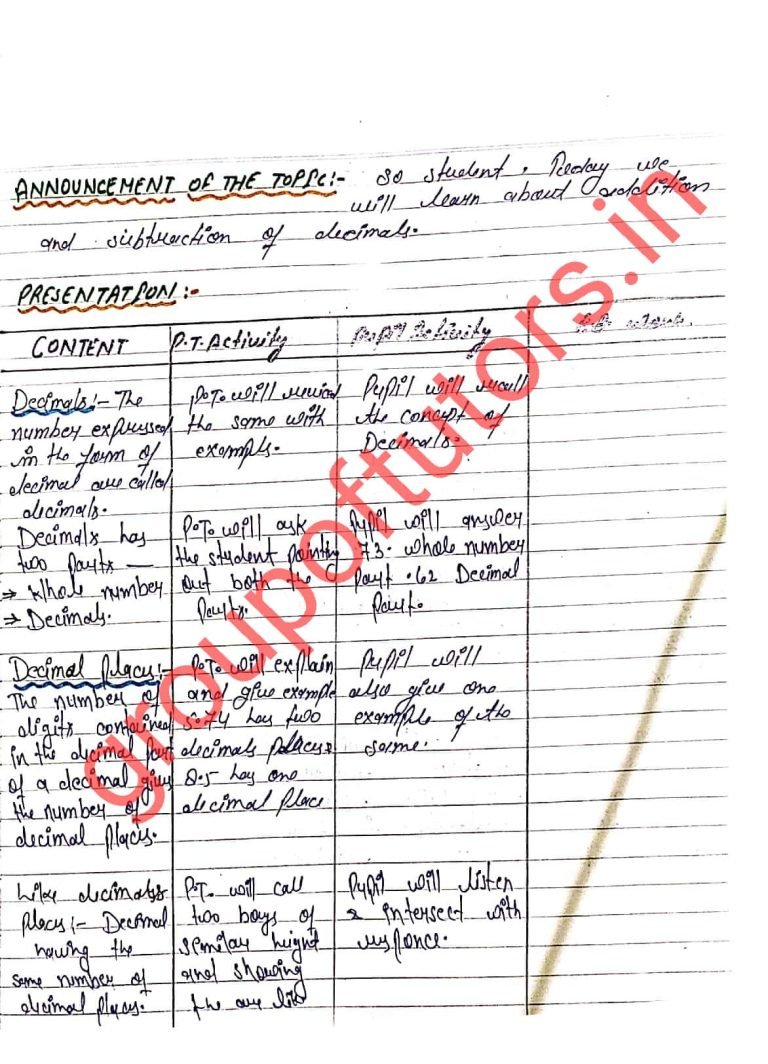 ANNOUNCEMENT OF THE TOPIC:- So student, Today we
will learn about addition
and subtraction of decimals.
PRESENTATION:-
CONTENT
P.T. Activity
Pupil Activity
Decimals:- The
number expressed
in the form of
decimal are called
decimals.
Decimals has
two parts —
→ Whole number
→ Decimals.
P.T. will
the same with
example.
Pupil will recall
the concept of
Decimals.
P.T. will ask
the student pointing
out both the
parts.
Pupil will answer
73. whole number
part .62 Decimal
part.
Decimal places:-
The number of
digits contained
in the decimal part
of a decimal gives
the number of
decimal places.
P.T. will explain
and give example
5.74 has two
decimals places
8.5 has one
decimal place
Pupil will
also give one
example of the
same.
Like decimals
places:- Decimal
having the
same number of
decimal places.
P.T. will call
two boys of
similar height
and showing
Pupil will listen
& intersect with
responce.
groupoftutors.in